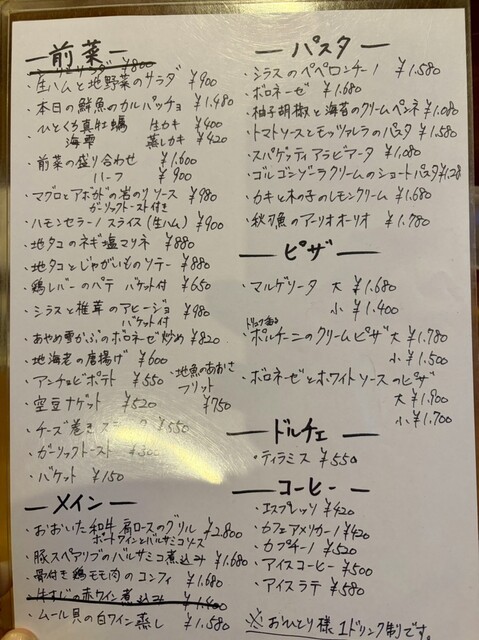 ― 前菜 ―
¥800
・生ハムと地野菜のサラダ ¥900
・本日の鮮魚のカルパッチョ ¥1.480
・ひとくち真牡蠣 生カキ ¥400
海雫 蒸しカキ ¥420
・前菜の盛り合わせ ¥1.600
ハーフ ¥900
・マグロとアボカドの岩のりソース ¥980
ガーリックトースト付き
・ハモンセラーノスライス(生ハム) ¥900
・地タコのネギ塩マリネ ¥880
・地タコとじゃがいものソテー ¥880
・鶏レバーのパテ バケット付 ¥650
・シラスと椎茸のアヒージョ ¥980
バケット付
・あやめ雪かぶのボロネーゼ炒め ¥820
・地海老の唐揚げ ¥600
・アンチョビポテト ¥550
・地魚のあおさ
フリット
¥750
・空豆ナゲット ¥520
・チーズ巻き ¥550
・ガーリックトースト
・バケット ¥150
― メイン ―
・おおいた和牛 肩ロースのグリル ¥2.800
ポートワインとバルサミコソース
・豚スペアリブのバルサミコ煮込み ¥1.680
・骨付き鶏モモ肉のコンフィ ¥1.680
・牛すじの赤ワイン煮込み ¥1.400
・ムール貝の白ワイン蒸し ¥1.580
― パスタ ―
・シラスのペペロンチーノ ¥1.580
・ボロネーゼ ¥1.680
・柚子胡椒と海苔のクリームペンネ ¥1.080
・トマトソースとモッツァレラのパスタ ¥1.580
・スパゲッティアラビアータ ¥1.080
・ゴルゴンゾーラクリームのショートパスタ
・カキと木の子のレモンクリーム ¥1.680
・秋刀魚のアーリオオーリオ ¥1.780
― ピザ ―
・マルゲリータ 大 ¥1.680
小 ¥1.400
トリュフ香る
・ポルチーニのクリームピザ 大 ¥1.780
小 ¥1.500
・ボロネーゼとホワイトソースのピザ
大 ¥1.900
小 ¥1.700
― ドルチェ ―
・ティラミス ¥550
― コーヒー ―
・エスプレッソ ¥420
・カフェアメリカーノ ¥420
・カプチーノ ¥520
・アイスコーヒー ¥500
・アイスラテ ¥580
※おひとり様1ドリンク制です